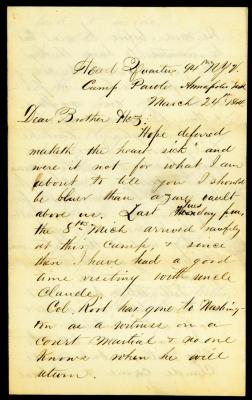 Head Quarters 94th N.Y.V.
Camp Parole Annapolis Md.
March 24th 1864
Dear Brother Hez.
Hope deferred
maketh the heart sick! and
were it not for what I am
about to tell you I should
be bluer than a vault
above us. Last Tuesday
the 8th Mich arrived safely
at this Camp, & since
then I have had a good
time visiting with uncle
Claude,
Col. Root has gone to Washing-
ton as a witness on a
Court Martial & no one
knows when he will
return.